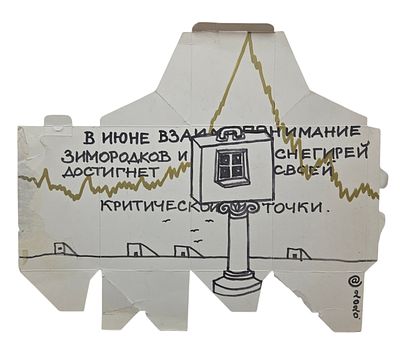 В ИЮНЕ ВЗАИМОПОНИМАНИЕ
ЗИМОРОДКОВ И СНЕГИРЕЙ
ДОСТИГНЕТ СВОЕЙ
КРИТИЧЕСКОЙ ТОЧКИ.